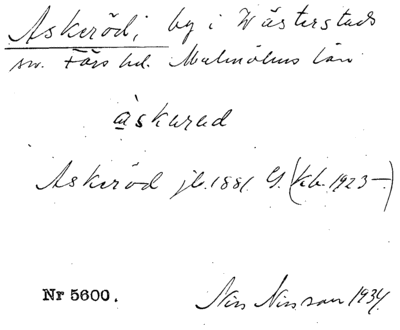 Askeröd, by i Wästerstads
sn. Färs hd. Malmöhus län
àskared
Askeröd jb. 1881. G. (kb. 1923—)
Nr 5600. Nils Nilsson 1934.